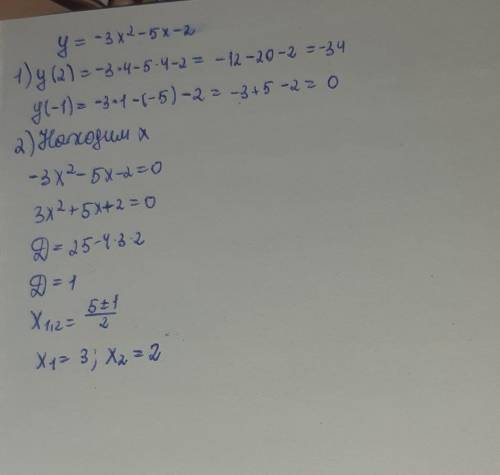 y = -3x²-5x-2
1) y(2) = -3·4-5·4-2 = -12-20-2 = -34
y(-1) = -3·1-(-5)-2 = -3+5-2 = 0
2) Находим x
-3x²-5x-2=0
3x²+5x+2=0
D = 25-4·3·2
D = 1
x₁,₂ = (5±1)/2
x₁ = 3; x₂ = 2